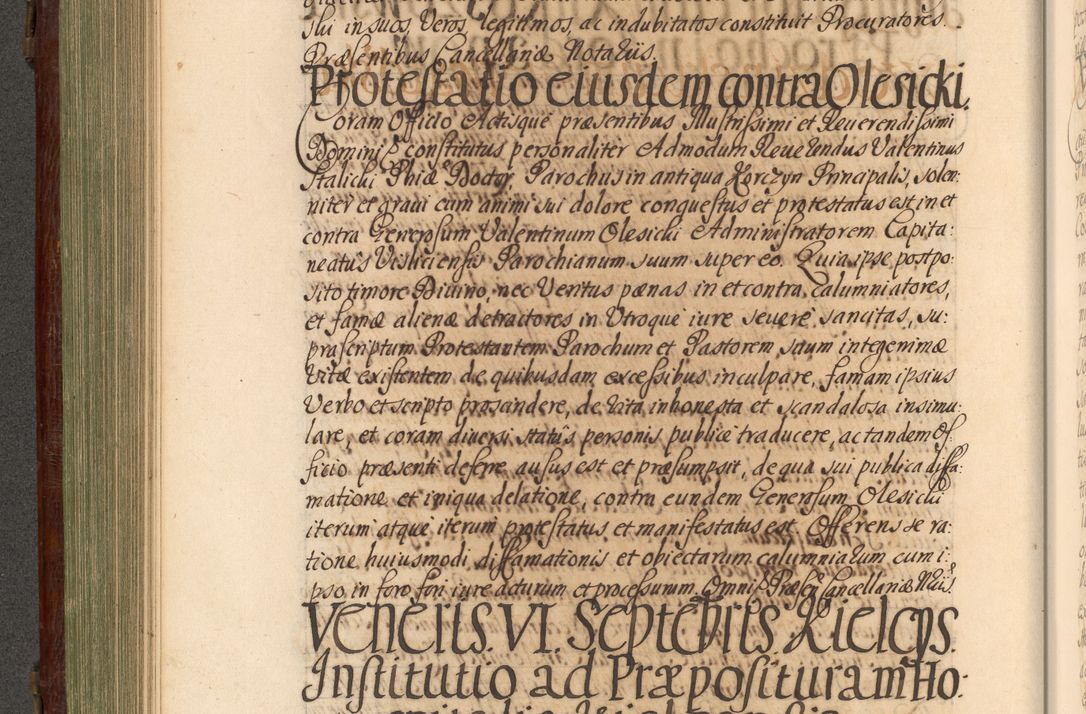 sui in suos, Veros legitimos, ac indubitatos constituit Procuratores.
Præsentibus Cancellariæ Notariis.
Protestatio eiusdem contra Olesicki.
Coram Officio Actisque præsentibus Illustrissimi et Reuerendissimi
Domini constitutus personaliter Admodum Reuerendus Valentinus
Stalicki Phiæ Doctor, Parochus in antiqua Korczyn Principalis, solen:
niter et graui cum animi sui dolore conquestus et protestatus est in et
contra Generosum Valentinum Olesicki Administratorem Capita:
neatus Visliciensis Parochianum suum super eo. Quia ipse postpo:
sito timore Diuino, nec Veritus pænas in et contra calumniatores,
et famæ alienæ detractores in Vtroque iure seuere sancitas, su:
prascriptum Protestantem Parochum et Pastorem suum integerimæ
Vitæ existentem de quibusdam excessibus inculpare, famam ipsius
Verbo et scripto proscindere, de Vita inhonesta et scandalosa insimu:
lare, et coram diuersi status personis publice traducere, ac tandem Of:
ficio præsenti deferre ausus est et præsumpsit, de qua sui publica diffa:
matione et iniqua delatione, contra eundem Generosum Olesicki
iterum atque iterum protestatus et manifestatus est, Offerens se ra:
tione huiusmodi diffamationis et obiectarum calumniarum cum i:
pso in foro fori iure acturum et processurum. Omnib Præsen Cancellariæ Nriis.
Veneris. VI. Septebris. Kielcys.
Institutio ad Præposituram Ho: